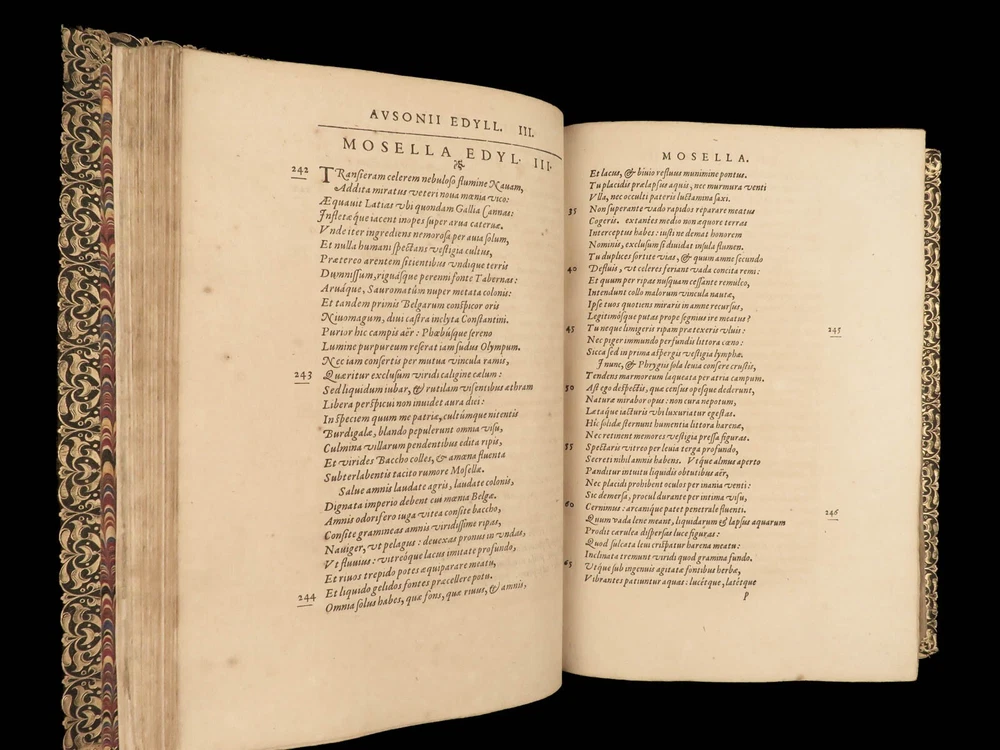 AVSONII EDYLL. III.
MOSELLA EDYL. III.
242 TRansieram celerem nebuloso flumine Nauam,
Addita miratus veteri noua mœnia vico:
Æquauit Latias vbi quondam Gallia Cannas:
Infletæque iacent inopes super arua cateruæ.
Vnde iter ingrediens nemorosa per auia solum,
Et nulla humani spectans vestigia cultus,
Prætereo arentem sitientibus vndique terris
Dumnissum, riguásque perenni fonte Tabernas:
Aruáque, Sauromatûm nuper metata colonis:
Et tandem primis Belgarum conspicor oris
Niuomagum, diui castra inclyta Constantini.
Purior hîc campis aër: Phœbúsque sereno
Lumine purpureum reserat iam sudus Olympum.
Nec iam consertis per mutua vincula ramis,
243 Quæritur exclusum viridi caligine cælum:
Sed liquidum iubar, & rutilam visentibus æthram
Libera perspicui non inuidet aura diei:
In speciem quum me patriæ, cultúmque nitentis
Burdigalæ, blando pepulerunt omnia visu,
Culmina villarum pendentibus edita ripis,
Et virides Baccho colles, & amœna fluenta
Subterlabentis tacito rumore Mosellæ.
Salue amnis laudate agris, laudate colonis,
Dignata imperio debent cui mœnia Belgæ.
Amnis odorifero iuga vitea consite baccho,
Consite gramineas amnis viridissime ripas,
Nauiger, vt pelagus: deuexas pronus in vndas,
Vt fluuius: vitreóque lacus imitate profundo,
Et riuos trepido potes æquiparare meatu,
Et liquido gelidos fontes præcellere potu.
244 Omnia solus habes, quæ fons, quæ riuus, & amnis,
MOSELLA.
Et lacus, & biuio refluus munimine pontus.
Tu placidis prælapsus aquis, nec murmura venti
Vlla, nec occulti pateris luctamina saxi.
35 Non superante vado rapidos reparare meatus
Cogeris. extantes medio non æquore terras
Interceptus habes: iusti ne demat honorem
Nominis, exclusum si diuidat insula flumen.
Tu duplices sortite vias, & quum amne secundo
40 Defluis, vt celeres feriant vada concita remi:
Et quum per ripas nusquam cessante remulco,
Intendunt collo malorum vincula nautæ,
Ipse tuos quotiens miraris in amne recursus,
Legitimósque putas prope segnius ire meatus?
45 Tu neque limigeris ripam prætexeris vluis: 245
Nec piger immundo perfundis littora cœno:
Sicca sed in prima aspergis vestigia lymphæ.
I nunc, & Phrygiis sola leuia consere crustis,
Tendens marmoreum laqueata per atria campum.
50 Ast ego despectis, quæ census opesque dederunt,
Naturæ mirabor opus: non cura nepotum,
Lætáque iacturis vbi luxuriatur egestas.
Hîc solidæ sternunt humentia littora harenæ,
Nec retinent memores vestigia pressa figuras.
55 Spectaris vitreo per leuia terga profundo,
Secreti nihil amnis habens. Vtque almus aperto
Panditur intuitu liquidis obtutibus aër,
Nec placidi prohibent oculos per inania venti:
Sic demersa, procul durante per intima visu,
60 Cernimus: arcanique patet penetrale fluenti.
Quum vada lene meant, liquidarum & lapsus aquarum 246
Prodit cærulea dispersas luce figuras:
Quod sulcata leui crispatur harena meatu:
Inclinata tremunt viridi quod gramina fundo.
65 Vtque sub ingenuis agitatæ fontibus herbæ,
Vibrantes patiuntur aquas: lucétque, latétque
P